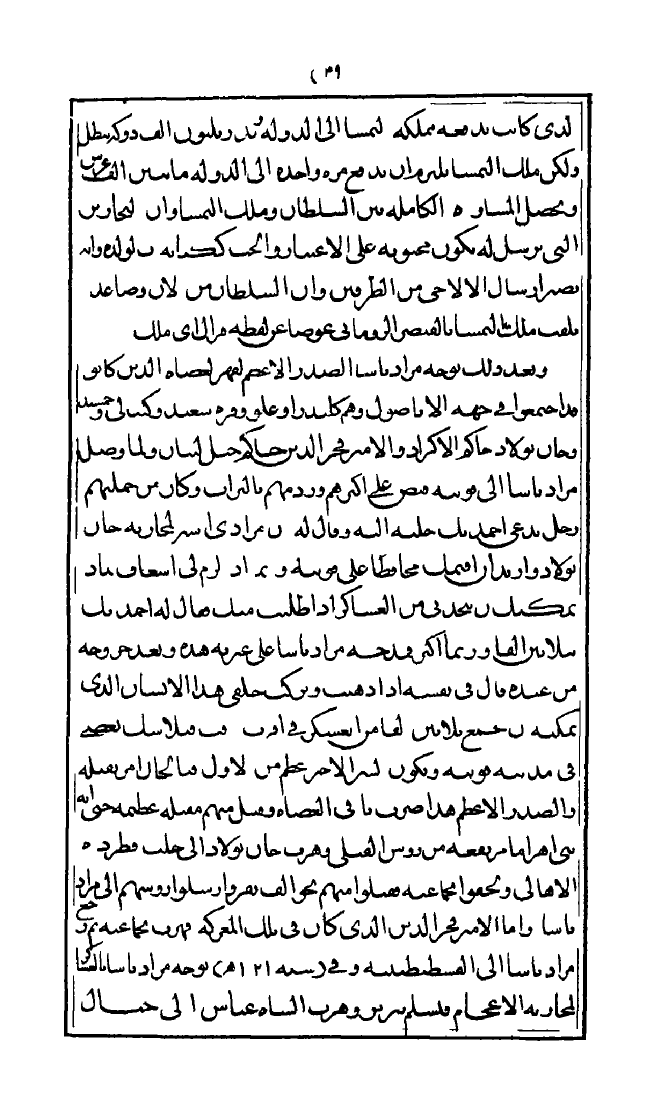 ٤٩
لذى كانت تدفعه مملكة لنمسا الى الدولة ثلاثين الف دوكه يبطل
ولكن ملك النمسا يلزم ان يدفع مرة واحدة الى الدولة مايتين الف غرش
وتحصل المساوة الكاملة بين السلطان وملك النمسا وان لتحارير
التى ترسل له تكون محتوية على الاعتبار والحب كــ لولده وانه
يصير ارسال الالاچى من الطرفين وان السلطان من لان وصاعد
يلقب ملك النمسا بالقيصر الرومانى عوضا عن لفظة قرال اى ملك
وبعد ذلك توجه مراد باشا الصدر الاعظم لقهر لعصاة الذين كانو
قد اجتمعوا فى جهة الاناضول وهم كلندر اوغلو وقره سعيد وكينالى و
وجان بولاد حاكم الاكراد والامير فخر الدين حاكم جبل لبنان ولما وصل
مراد باشا الى قونيه قبض على اكثرهم وردمهم بالتراب وكان من جملتهم
رجل يدعى احمد بك جلبه اليه وقال له ن مرادى اسير لمحاربة جان
بولاد واريد ان اقيمك محافظا على قونيه و لزم لى اسعاف
يمكنك ن تنجدنى من العساكر اذا طلبت منك فقال له احمد بك
بثلاثين الفا وربما اكثر فمدحه مراد باشا على غيرته هذه وبعد خروجه
من عنده قال فى نفسه اذا ذهبت وتركت خلفى هذا الانسان الذى
يمكنه ن يجمع ثلاثين لفا من العسكر فى اقرب فلا شك
فى مدينة قونيه ويكون لشر الاخير اعظم من لاول فبالحال امر بقتله
والصدر الاعظم هذا ضرب باقى العصاة وقتل منهم مقتلة عظيمة حتى انه
بنى اهراما مرتفعة من روس القتلى وهرب جان بولاد الى حلب فطرده
الاهالى ولحقوا بجماعته فقتلوا منهم نحو الف نفر وارسلوا روسهم الى مراد
باشا واما الامير فخر الدين الذى كان فى تلك المعركة فهرب بجماعته ثم رجع
مراد باشا الى القسطنطينية وفى (سنة ١٢١ ه‍م) توجه مراد باشا بالعساكر
لمحاربة الاعجام فتسلم تبريز وهرب الشاه عباس الى جبال